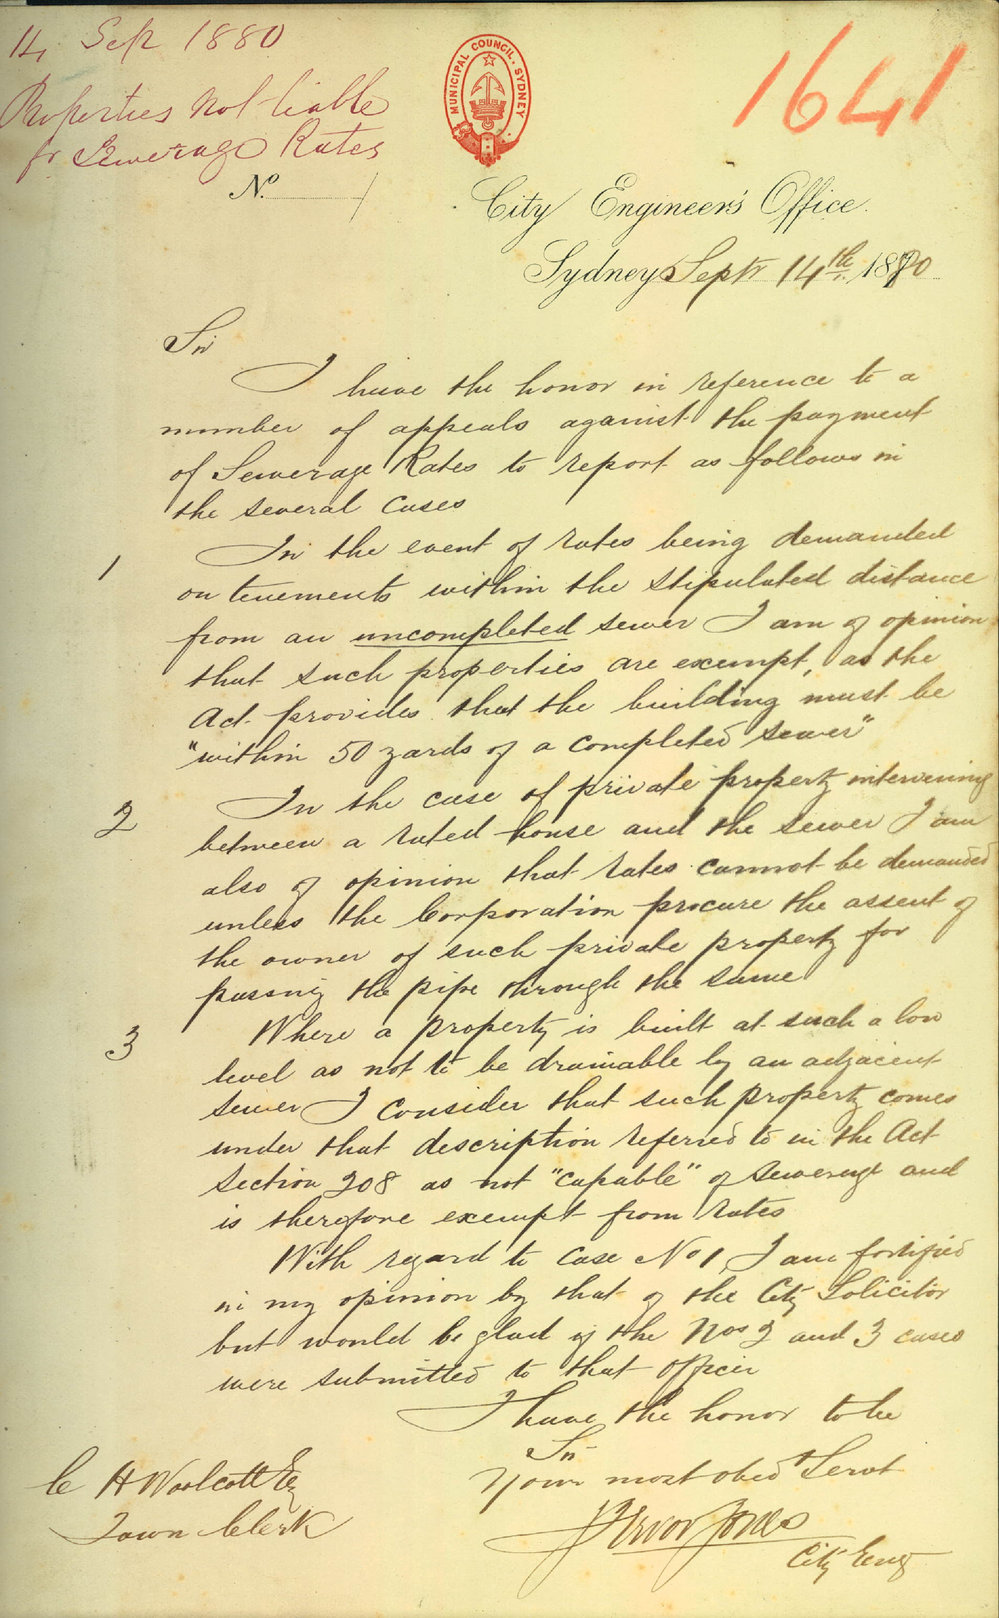 14 Sep 1880
Properties not liable
for Sewerage Rates
MUNICIPAL COUNCIL. SYDNEY
1641
No.
City Engineer's Office.
Sydney, Septr 14th 1880
Sir
I have the honor in reference to a
number of appeals against the payment
of Sewerage Rates to report as follows in
the several cases
1 In the event of rates being demanded
on tenements within the stipulated distance
from an uncompleted sewer I am of opinion
that such properties are exempt, as the
Act provides that the building must be
"within 50 yards of a completed sewer"
2 In the case of private property intervening
between a rated house and the sewer I am
also of opinion that rates cannot be demanded
unless the Corporation procure the assent of
the owner of such private property for
passing the pipe through the same
3 Where a property is built at such a low
level as not to be drainable by an adjacent
sewer I consider that such property comes
under that description referred to in the Act
section 208 as not "capable" of sewerage and
is therefore exempt from rates
With regard to case No 1, I am fortified
in my opinion by that of the City Solicitor
but would be glad if the Nos 2 and 3 cases
were submitted to that officer
I have the honor to be
Sir
Your most obed Servt
Trevor Jones
City Eng
C H Woolcott Esq
Town Clerk